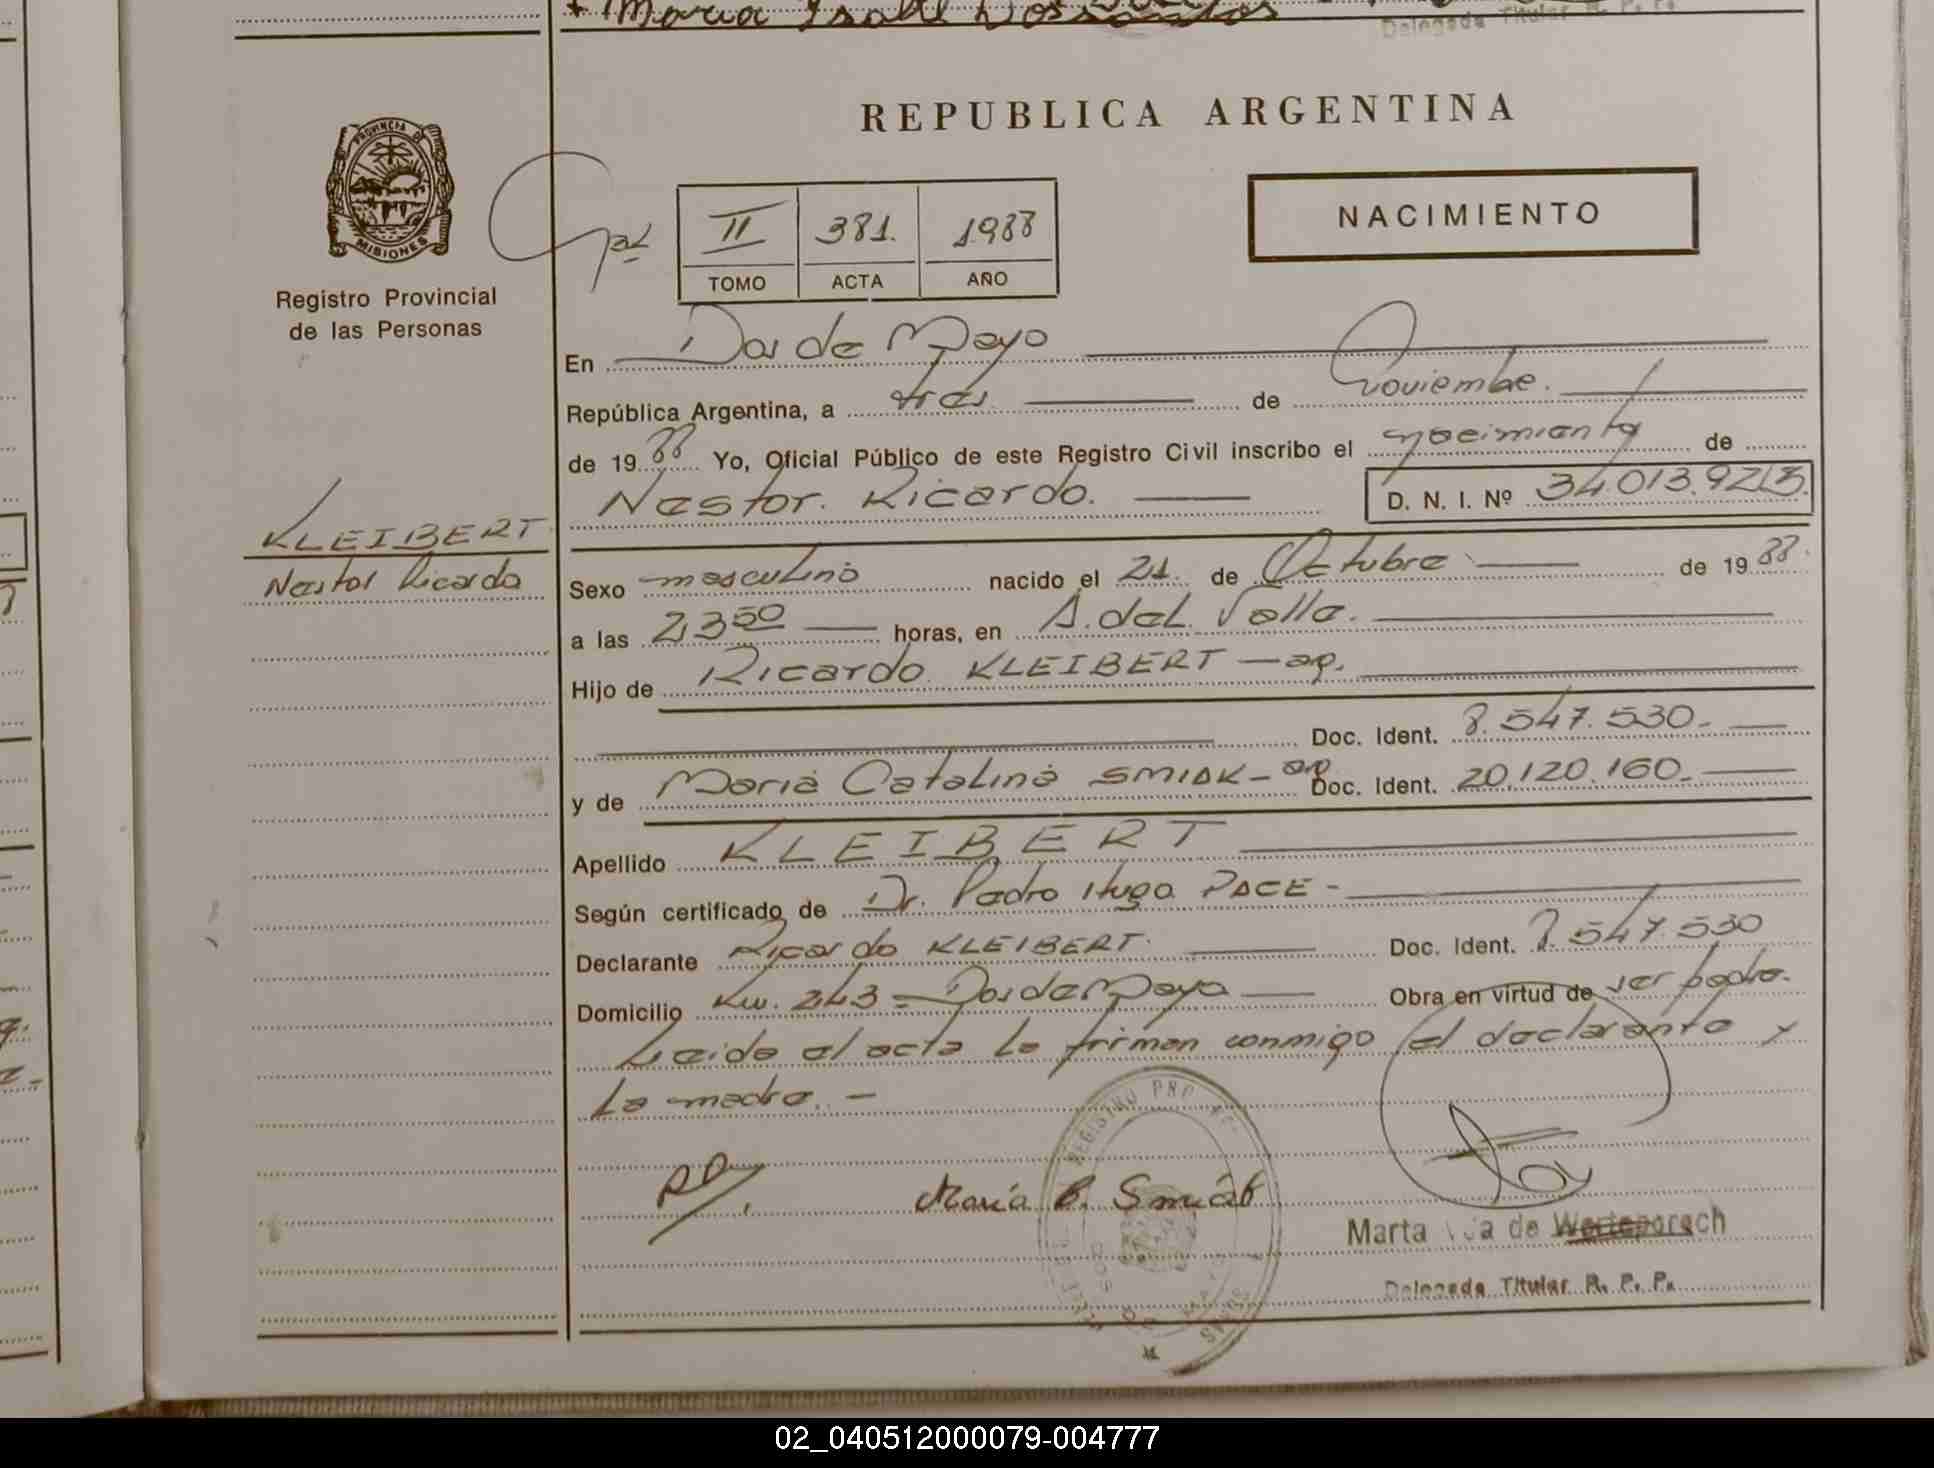 Maria Isabel Dos Santos
Delegada Titular R. P. P.
PROVINCIA DE
MISIONES
Registro Provincial
de las Personas
REPUBLICA ARGENTINA
NACIMIENTO
II 381. 1988
TOMO ACTA AÑO
En Dos de Mayo
República Argentina, a tres de noviembre.
de 1988 Yo, Oficial Público de este Registro Civil inscribo el nacimiento de
Nestor. Ricardo. D. N. I. Nº 34013.923.
KLEIBERT
Nestor Ricardo
Sexo masculino nacido el 21. de Octubre de 1988.
a las 23 50 horas, en A. del Valle.
Hijo de Ricardo KLEIBERT - ap.
Doc. Ident. 8.547.530.-
y de Maria Catalina SMIAK - ap Doc. Ident. 20.120.160.-
Apellido KLEIBERT
Según certificado de Dr. Pedro Hugo PACE -
Declarante Ricardo KLEIBERT. Doc. Ident. 8.547.530
Domicilio Km. 243 - Dos de Mayo Obra en virtud de ser padre.
Leida el acta la firman conmigo el declarante y
la madre. -
María C. Smiak
REGISTRO
Marta de
Delegada Titular R. P. P.
02_040512000079-004777